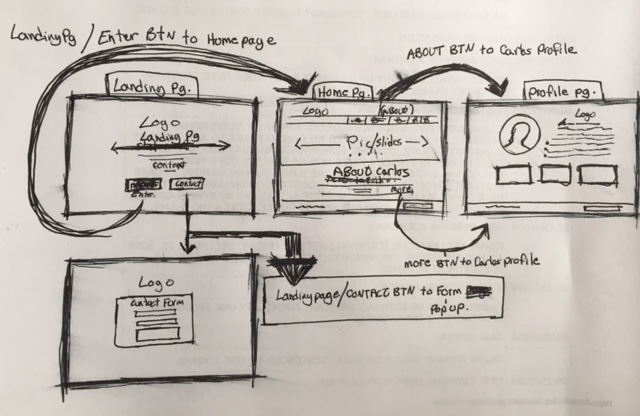 Landing Pg / Enter BTN to Home page
ABOUT BTN to Carlos Profile
Landing Pg.
Home Pg.
Profile pg.
Logo
Landing Pg
content
Enter.
Contact
Logo
ABOUT
Pic/slides
ABOUT Carlos
more
Logo
more BTN to Carlos profile
Logo
Contact Form
Landing page/CONTACT BTN to Form
Pop up.